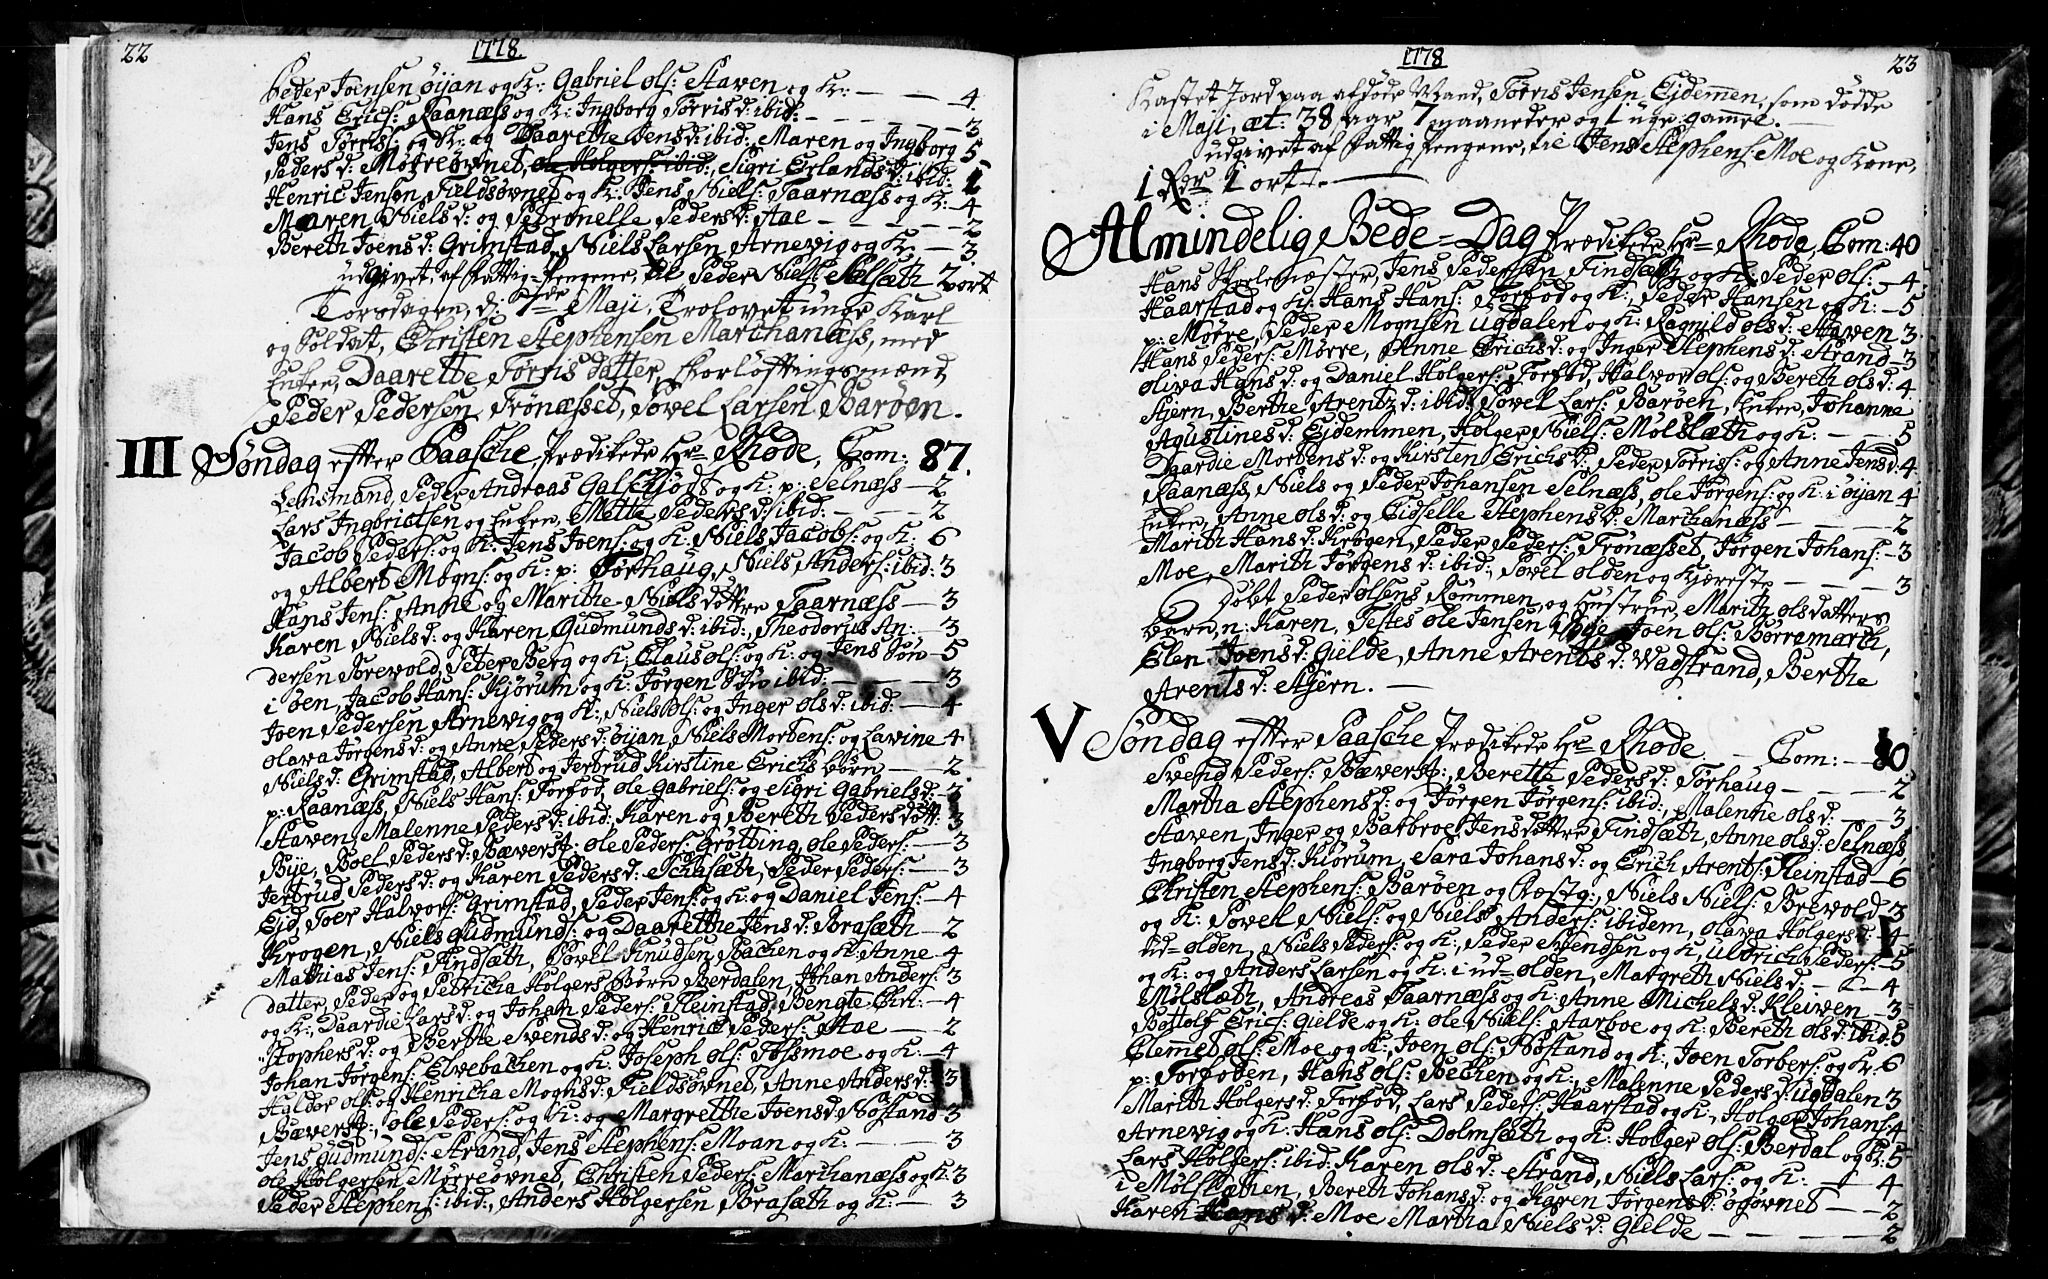 22
1778.
Peder Joensen øijan og K: Gabriel Ols: Staven og K: — — — 4
Hans Erics: Raanæss og K: Ingborg Torrisd: ibid: — — — 3
Jens Torriss: og K: og Daarethe Jensd: ibid: Maren og Ingborg 5
Pedersd: Mørreøvnet, ole Holgers: ibid: Sigri Erlandsd: ibid:
Henric Jensen Fieldsøvnet og K: Jens Niels: Taarnæss og K: 4
Maren Nielsd: og Petronelle Pedersd: Aae — — — 2
Bereth Joensd: Grimstad, Niels Larsen Arnevig og K: — 3
udgivet af Fattig-Pengene, til Peder Niels: Selsæth 2 ort
Torsdagen, d: 7de Maji, Trolovet unge Karl
og Soldat, Christen Stephensen Marchanæss, med
Enken, Daarethe Torris datter, Forløftningsmænd,
Peder Pedersen Trønæsset, Povel Larsen Barøen.
III Søndag effter Paasche, Prædikede Hr Rhode, Com: 87.
Lensmand, Peder Andreas Galtschiødt og K: p: Selnæss — 2
Lars Ingbrictsen og Enken, Mette Pedersd: ibid: — — — 2
Jacob Peders: og K: Jens Joens: og K: Niels Jacobs: og K: 6
og Albert Mogns: og K: p: Torhaug, Niels Anders: ibid: 3
Hans Jens: Anne og Marithe Niels døttre Taarnæss — 3
Karen Nielsd: og Karen Gudmundsd: ibid:, Theodorus An: 3
dersen Brevold, Peder Berg og K: Claus ols: og K: og Jens Søv 5
i øen, Jacob Hans: Kjørum og K: Jørgen Søv ibid: — — — 3
Joen Pedersen Arnevig og K:, Niels ols: og Inger olsd: ibid: — 4
olava Jørgensd: og Anne Pedersd: øijan, Niels Mortens: og Lavine 4
Nielsd: Grimstad, Albert og Jertrud Kirstine Erichs børn — — 2
p: Raanæss, Niels Hans: Torfod, ole Gabriels: og Sigri Gabrielsd: 3
Staven, Malenne Pedersd: ibid: Karen og Bereth Peders døtt: 3
Bye, Boel Pedersd: Bæverst: ole Peders: Grøtbing, ole Peders: — 3
Jertrud Pedersd: og Karen Pedersd: Schasæth, Peder Peders: — 3
Eid, Joer Halvors: Grimstad, Peder Jens: og K: og Daniel Jens: — 4
Krogen, Niels Gudmunds: og Daarethe Jensd: Brasæth — 2
Mathias Jens: Findsæth, Povel Knudsen Bachen og K: Anne — 4
datter, Peder og Petricha Holgers Børn Berdalen, Johan Anders: 3
og K:, Daardie Larsd: og Johan Peders: Fleinstad, Bengte Chri: — 4
stophersd: og Berthe Svendsd: og Henric Peders: Aae — — 2
Johan Jørgens: Elvebachen og K: Joseph ols: Fossmoe og K: — 4
Haldor ols: og Henricha Mognsd: Fieldsøvnet, Anne Andersd: 3
Bæverst:, ole Peders: og K: og Margrethe Joensd: Nøstand 3
Jens Gudmunds: Strand, Jens Stephens: Moan og K: — — 3
ole Holgersen Mørreøvnet, Christen Peders: Marchanæss og K: 3
Peder Stephens: ibid:, Anders Holgersen Brasæth og K: — 3
23
1778
Kastet Jord paa afdøde Mand, Torris Jensen Eidemmen, som døde
i Maji, æt: 38 aar 7 maaneder og 1 uge gamel. —
udgivet af Fattig Pengene, til Jens Stephens: Moe og Kone,
1 Rdr 1 ort. —
Almindelig Bede-Dag Prædikede Hr Rhode, Com: 40
Hans, Jens Pedersen Findsæth og K: Peder ols: 4
Haarstad og K: Hans Hans: Torfod og K:, Peder Hansen og K: — 5
p: Mørre, Peder Mognsen Ugdalen og K: Ragnild olsd: Staven 3
Hans Peders: Mørre, Anne Erichsd: og Inger Stephensd: Strand 3
oliva Hansd: og Daniel Holgers: Torfod, Halvor ols: og Bereth olsd: 4
Stjern, Berthe Arentzd: ibid: Povel Lars: Barøen, Enken, Johanne
Agustinesd: Eidemmen, Holger Niels: Mølslæth og K: — — 5
Daardie Mortensd: og Kirsten Erichsd:, Peder Torris: og Anne Jensd: 4
Raanæss, Niels og Peder Johansen Selnæss, ole Jørgens: og K: i øijan 4
Enken, Anne olsd: og Eidselle Stephensd: Marchanæss — — — 2
Marith Hansd: Krogen, Peder Peders: Trønæsset, Jørgen Johans: — 3
Moe, Marith Jørgensd: ibid:, Povel olden og Kjereste — — — 3
Døbt Peder olsens Rømmen og Hustrue, Marith olsdatters
barn, n: Karen, Testes ole Jensen Bye, Joen ols: Børramarch,
Elen Joensd: Gielde, Anne Arentsd: Wadstrand, Berthe
Arentsd: Stjern. —
V Søndag effter Paasche Prædikede Hr Rhode — Com: 80
Svend Peders: Bæverst:, Berette Pedersd: Torhaug — — — 2
Martha Stephensd: og Jørgen Jørgens: ibid:, Malenne olsd: — 3
Staven, Inger og Barbroe Jens døttre Findsæth, Anne olsd: Selnæss,
Ingborg Jensd: Kiørum, Sara Johansd: og Erich Arents: Fleinstad — 6
Christen Stephens: Barøen og Fæstg:, Niels Niels: Brevold 3
og K: Povel Niels: og Niels Anders: ibidem, olava Holgersd: 4
ud-olden, Niels Peders: og K:, Peder Svendsen og K:, Uldrich Peders: — 5
og K: og Anders Larsen og K: i ud-olden, Margreth Nielsd: — 4
Mølslæth, Andreas Taarnæss og K: Anne Michelsd: Kleiven — 3
Bottolf Erics: Gielde og K: ole Niels: Aarboe og K: Bereth olsd: ibid: 5
Clemmet ols: Moe og K:, Joen ols: Nøstand og K:, Joen Torbers: og K: 6
p: Torfoden, Hans ols: Bechen og K:, Malenne Pedersd: Ugdalen 3
Marith Holgersd: Torfod, Lars Peders: Haarstad og K:, Holger Johans: 4
Arnevig og K: Hans ols: Dolmsæth og K: Holger ols: Berdal og K: 5
Lars Holgers: ibid: Karen olsd: Strand, Niels Lars: og K: — 4
i Mølslæthen, Bereth Johansd: og Karen Jørgensd: øgøvnet — — 2
Karen Hansd: Moe Martha Nielsd: Gielde — — — — 2